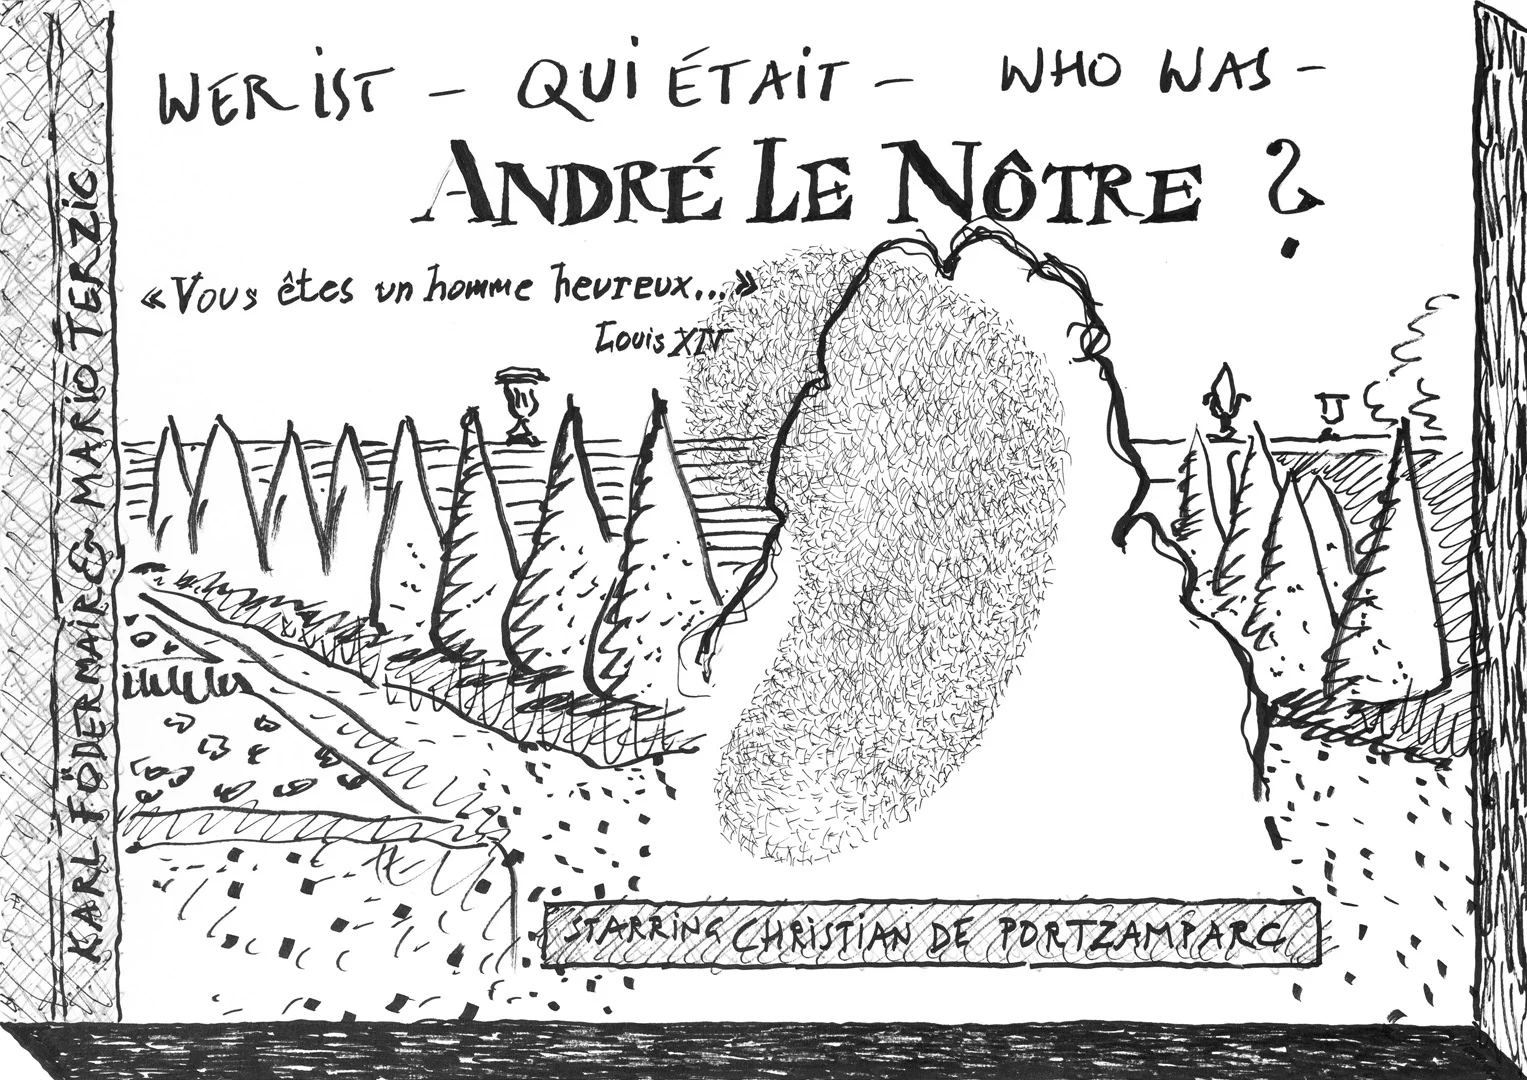 WER iST – QUi ÉTAiT – WHO WAS –
ANDRÉ LE NÔTRE ?
«Vous êtes un homme heureux...»
Louis XIV
KARL FÖDERMAIR & MARIO TERZIC
STARRiNG CHRiSTIAN DE PORTZAMPARC